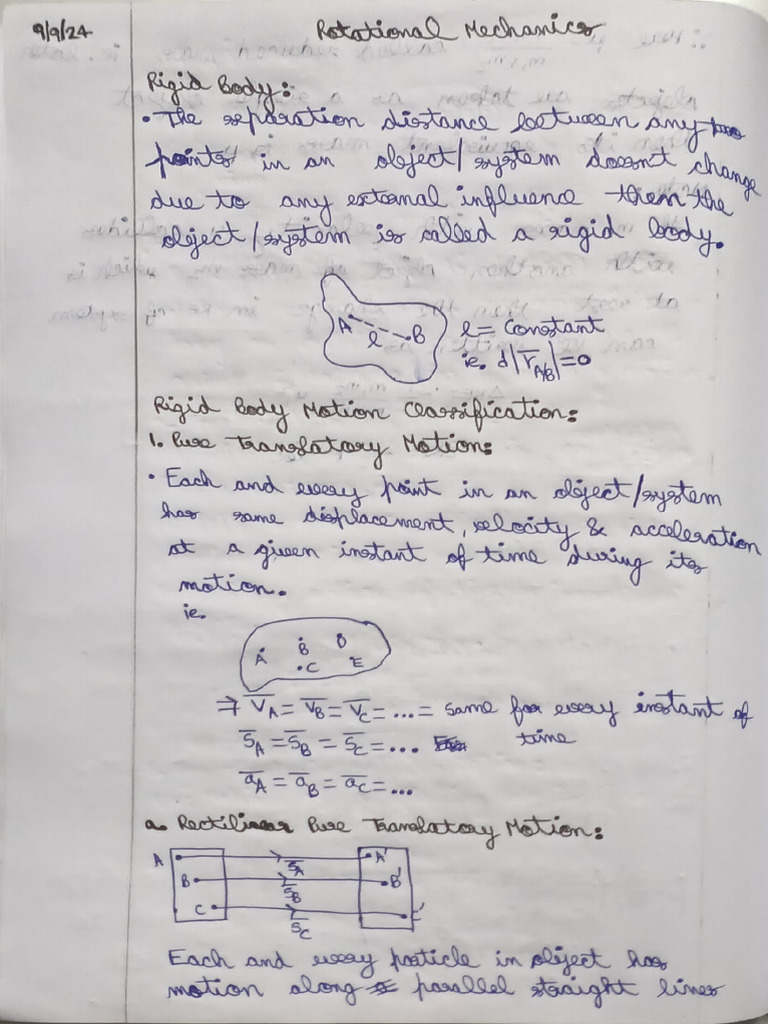 9/9/24
Rotational Mechanics
Rigid Body:
• The separation distance between any
points in an object/system doesn't change
due to any external influence them the
object/system is called a rigid body.
A B l l = constant
ie. d|r̅A/B|=0
Rigid Body Motion Classification:
1. Pure Translatory Motion:
• Each and every point in an object/system
has same displacement, velocity & acceleration
at a given instant of time during its
motion.
ie.
A B C D E
⇒ V̅A = V̅B = V̅C = ... = same for every instant of
S̅A = S̅B = S̅C = ... time
a̅A = a̅B = a̅C = ...
a. Rectilinear Pure Translatory Motion:
A S̅A A'
B S̅B B'
C S̅C C'
Each and every particle in object has
motion along parallel straight lines